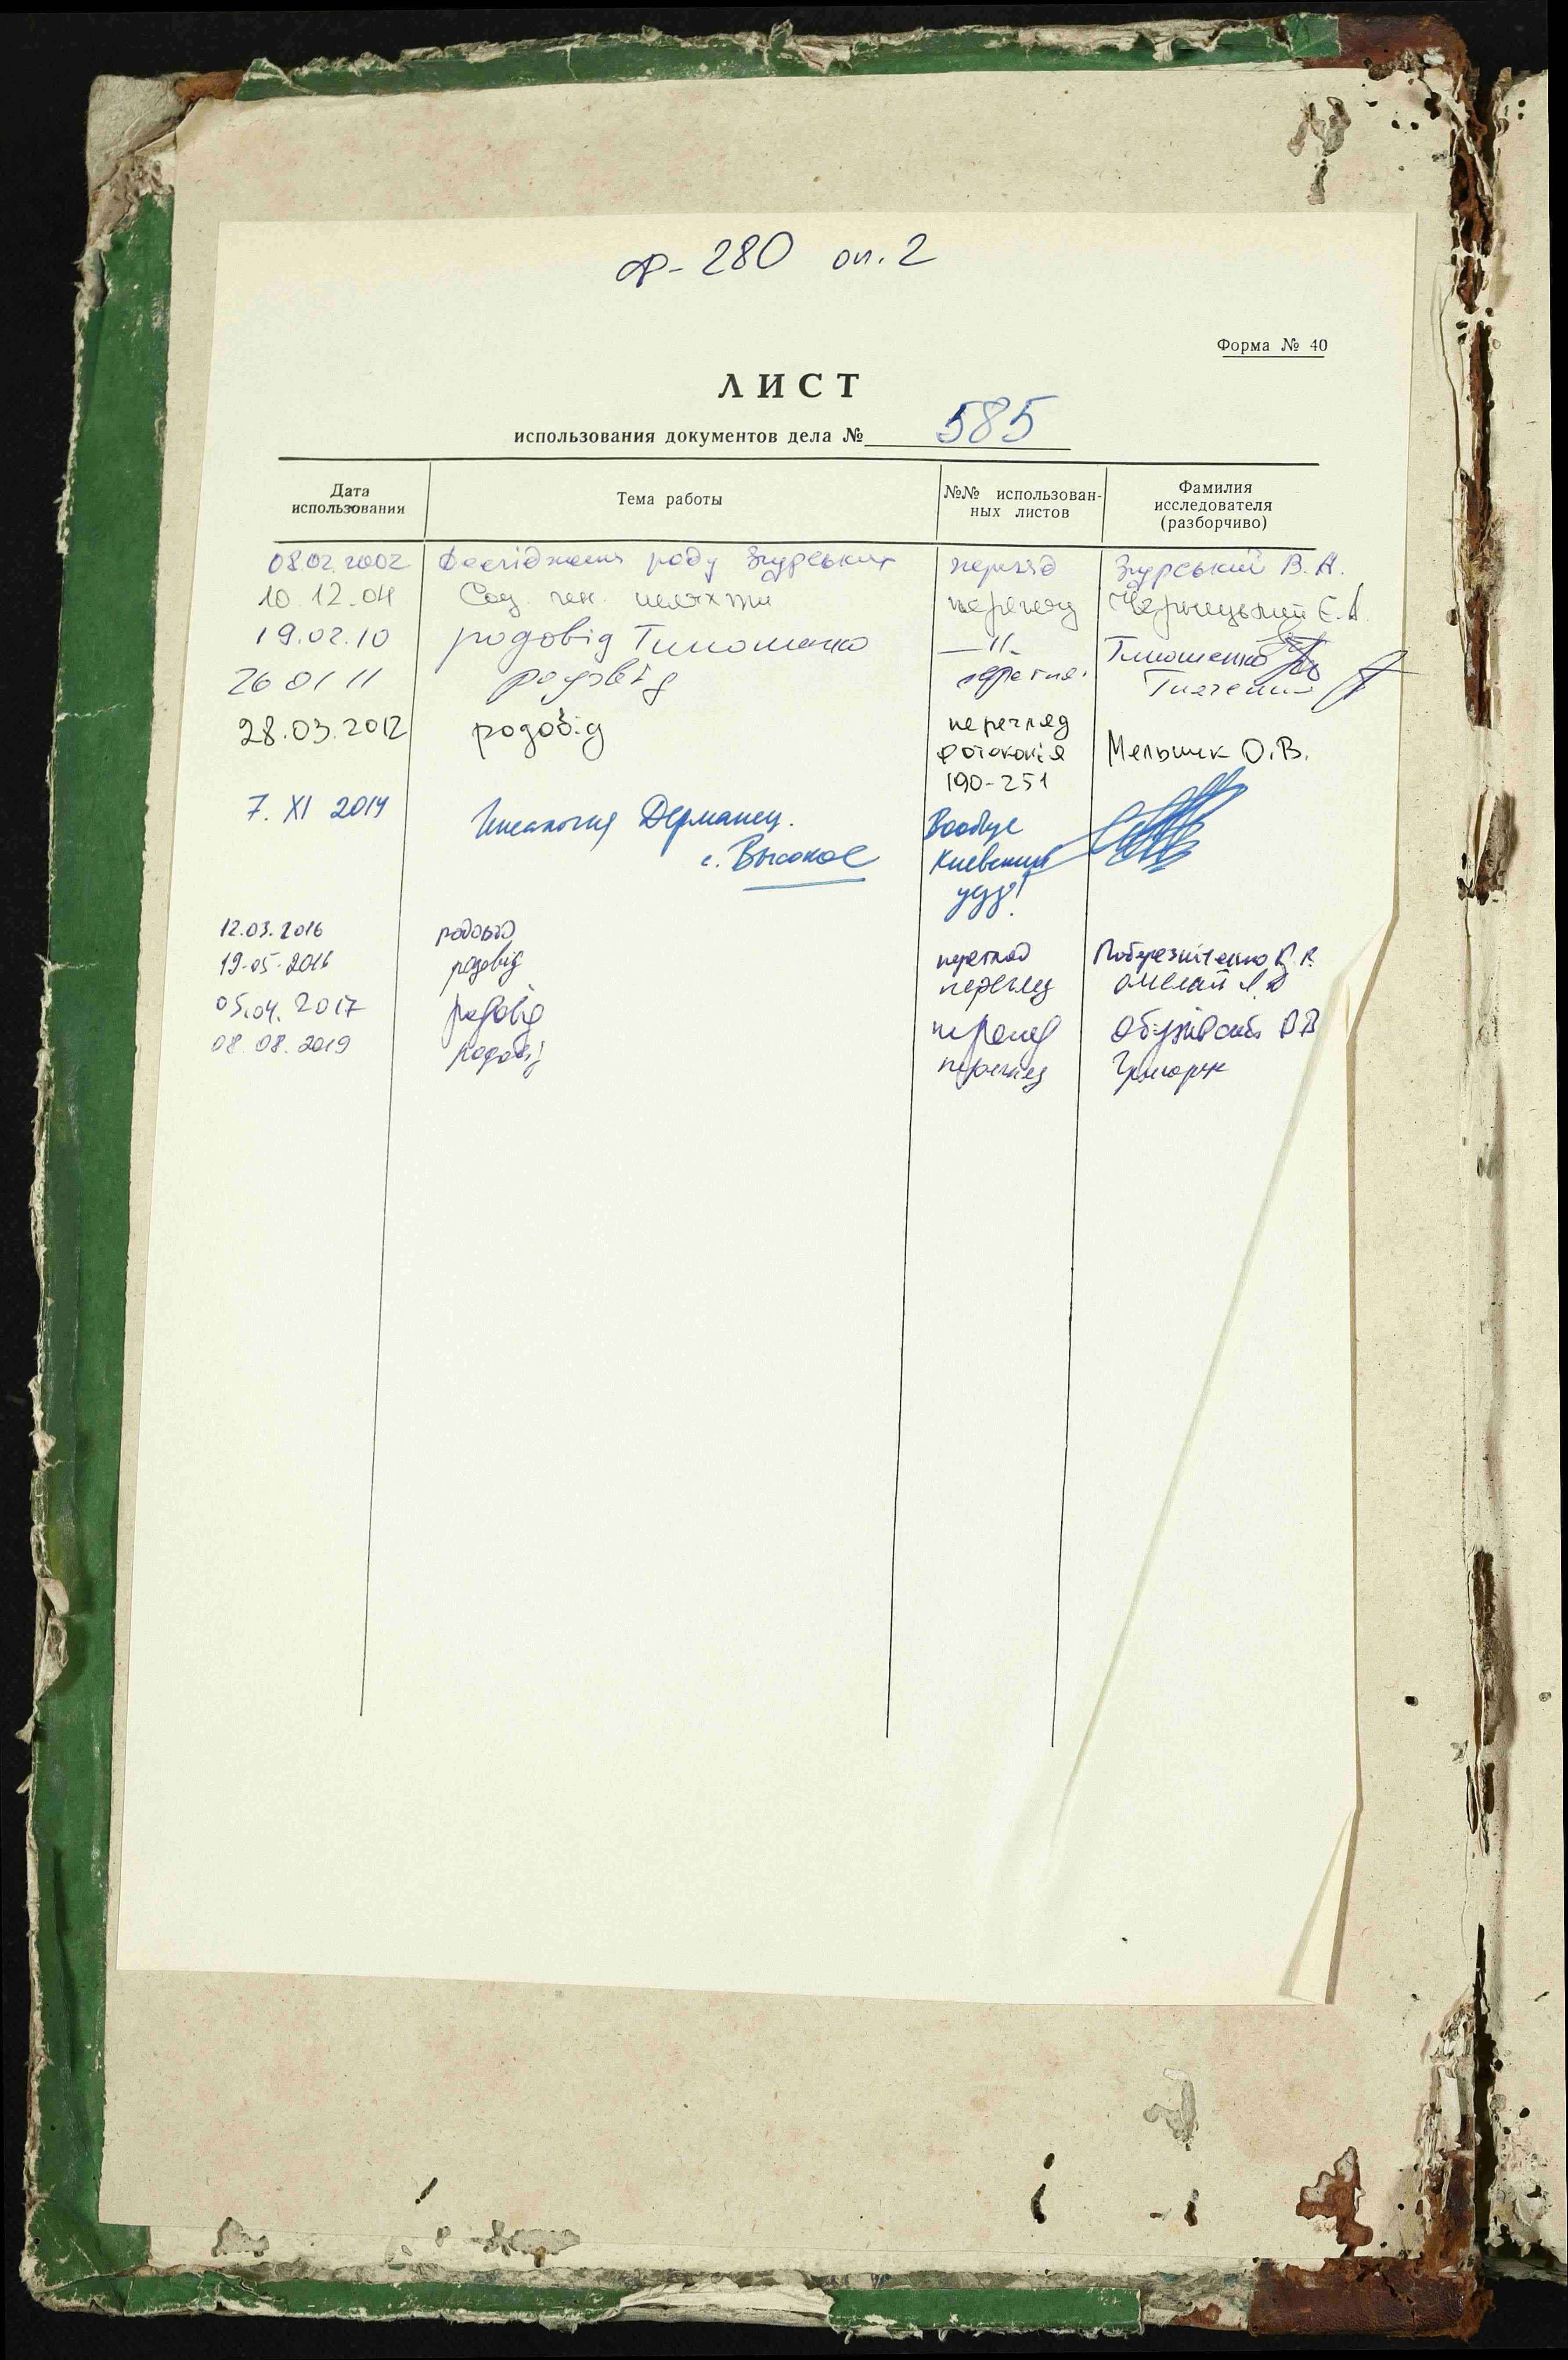 ф-280 оп. 2
Форма № 40
ЛИСТ
использования документов дела № 585
Дата использования Тема работы №№ использован-ных листов Фамилия исследователя (разборчиво)
08.02.2002 Дослідження роду Згурських перегляд Згурський В. А.
10.12.04 Соц. ген. шляхти перегляд Чернецький Є. А.
19.02.10 родовід Тимошенко —"— Тимошенко
26 01 11 родовід перегляд
28.03.2012 родовід перегляд
фотокопія Мельник О.В.
190-251
7. XI 2014 Генеалогия Дерманец. Вообще
с. Высокое Киевский
уезд!
12.03.2016 родовід
19.05.2016 родовід перегляд Побережніченко
перегляд
05.04.2017 родовід перегляд
08.08.2019 родовід перегляд Григорук